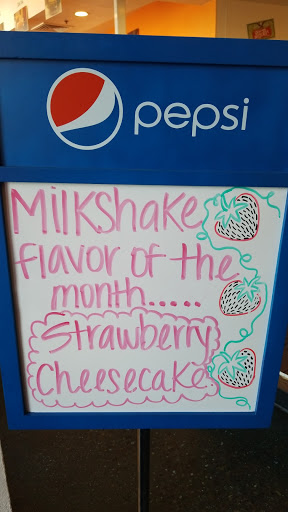 pepsi
Milkshake
flavor of the
month.....
Strawberry
Cheesecake